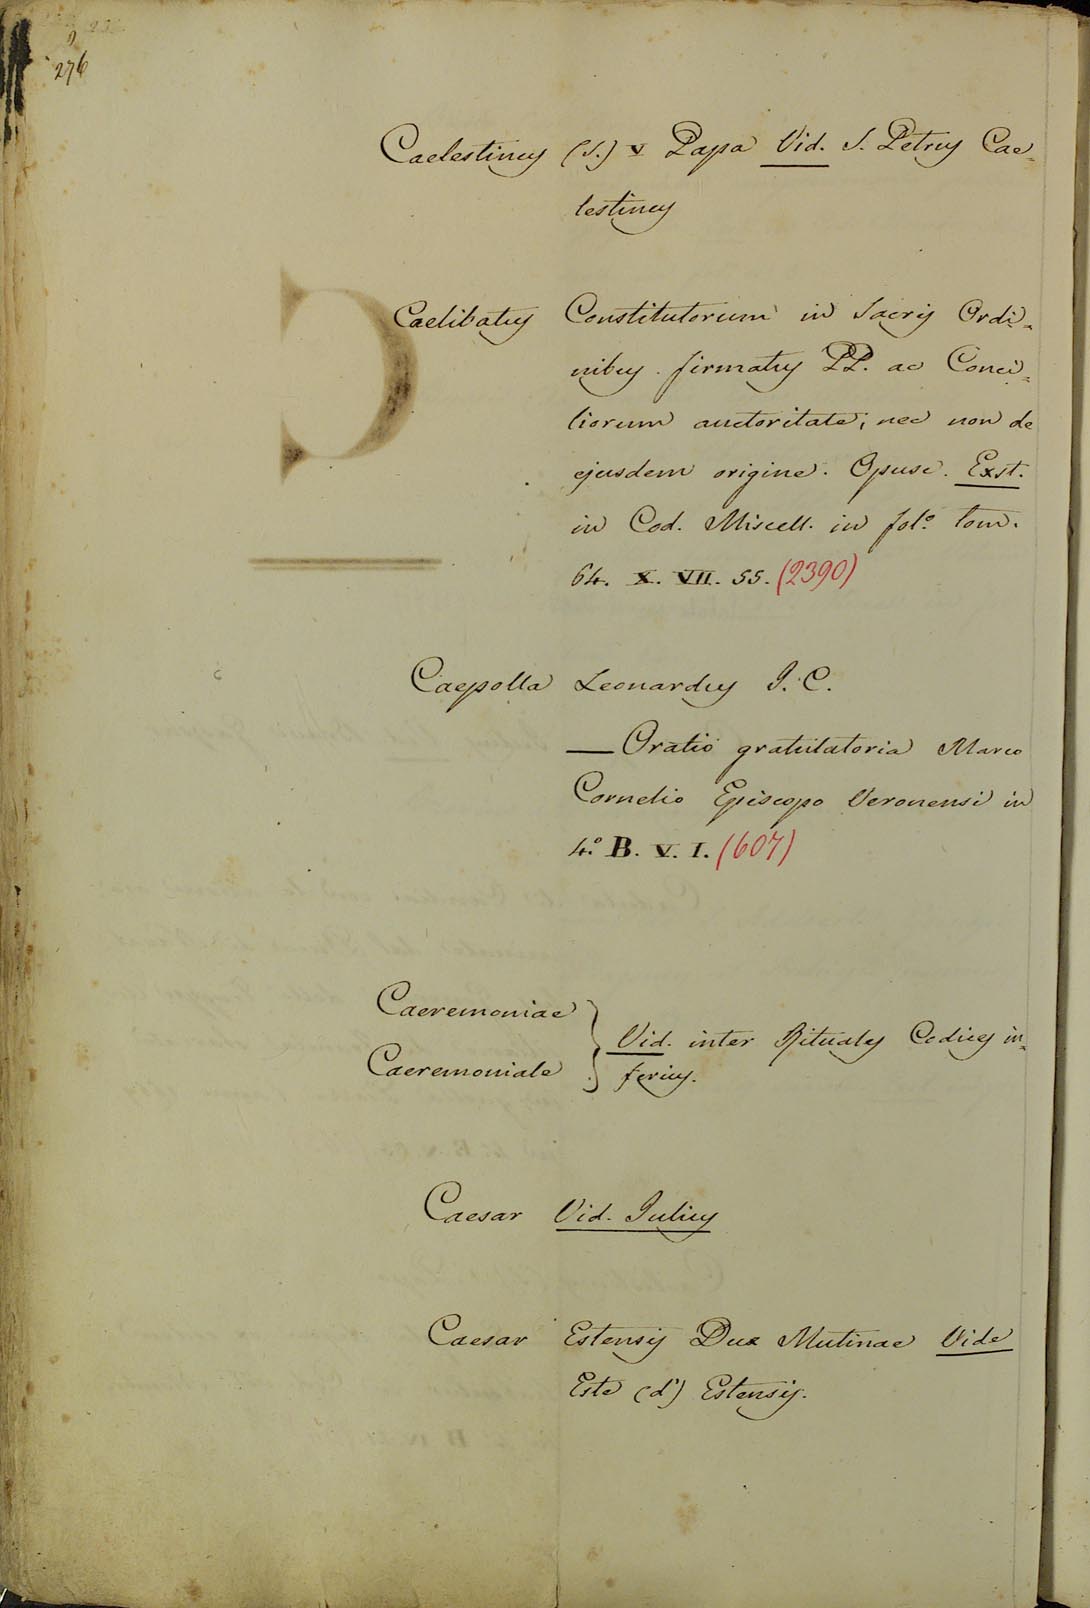 276
Caelestinus (S.) V Papa Vid. S. Petrus Cae=
lestinus
Caelibatus Constitutorum in Sacris Ordi=
nibus firmatus PP. ac Conci=
liorum auctoritate; nec non de
ejusdem origine. Opusc. Exst.
in Cod. Miscell. in fol.º tom.
64. X. VII. 55. (2390)
Caepolla Leonardus J. C.
— Oratio gratulatoria Marco
Cornelio Episcopo Veronensi in
4.º B. V. I. (607)
Caeremoniae
Caeremoniale } Vid. inter Rituales Codices in=
ferius.
Caesar Vid. Julius
Caesar Estensis Dux Mutinae Vide
Este (d') Estensis.